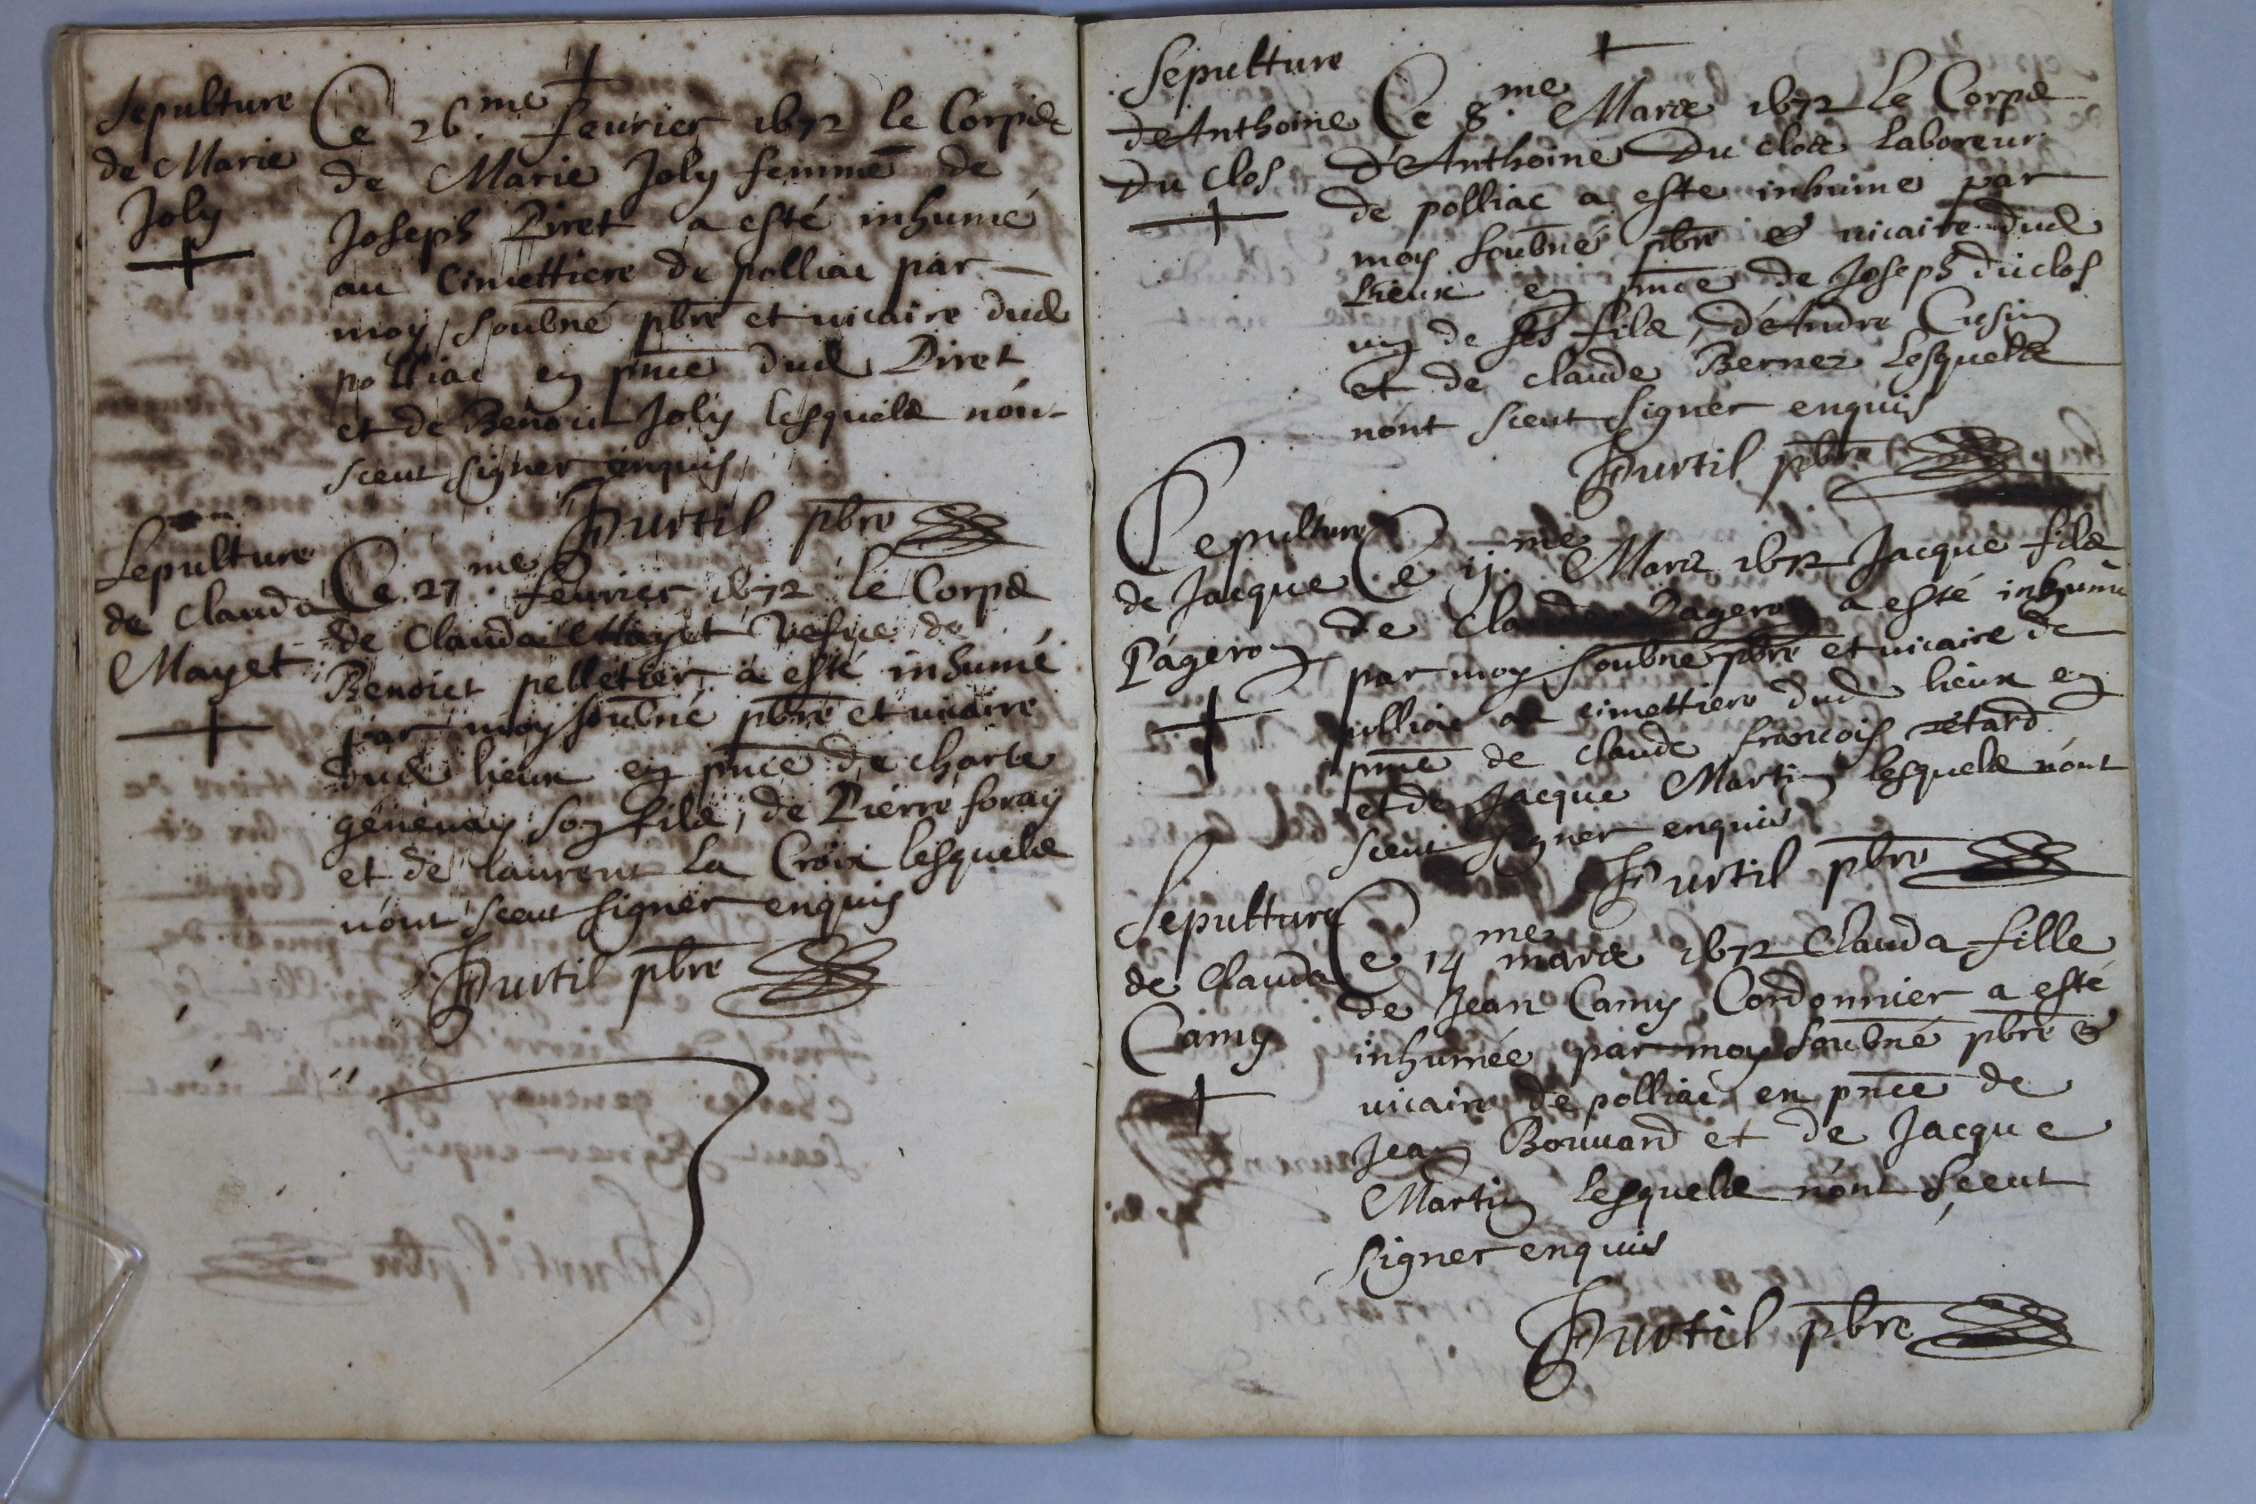 Sepulture
de Marie
Joly
Ce 26.me feurier 1672 le Corps
de Marie Joly femme de
Joseph Piret a esté inhumé
au Cimettiere de polliac par
moy soubné pbre et vicaire dud
polliac en pnce dud Piret
et de Benoit Joly lesquels nón
sceut signer enquis
Hurtil pbre
Sepulture
de Clauda
Mayet
Ce 27.me feurier 1672 le Corps
de Clauda Mayet vefue de
Benoict pelletier a esté inhumé
par moy soubné pbre et vicaire
dud lieux en pnce de charle
géneuay son fils, de Pierre foray
et de laurent La Croix lesquels
nónt sceut signer enquis
Hurtil pbre
Sepulture
dAnthoine
Du Clos
Ce 8.me Mars 1672 Le Corps
d'Anthoine Du clos Laboreur
de polliac a este inhume par
moy soubné pbre & vicaire dud
Lieux en pnce de Joseph du clos
un de ses fils, d'Andre Cusin
et de claude Bernez Lesquels
nónt sceut signer enquis
Hurtil pbre
Sepulture
de Jacque
Págeron
Ce 11.me Mars 1672 Jacque fils
de Claude Pageron a esté inhumé
par moy soubné pbre et vicaire de
polliac au cimettiere dud lieux en
pnce de claude francois retard
et de Jacque Martin lesquels nónt
sceut signer enquis
Hurtil pbre
Sepulture
de Clauda
Camy
Ce 14me mars 1672 Clauda fille
de Jean Camy Cordonnier a esté
inhumée par moy soubné pbre &
vicaire de polliac en pnce de
Jean Bouuard et de Jacque
Martin Lesquels nónt sceut
signer enquis
Hurtil pbre